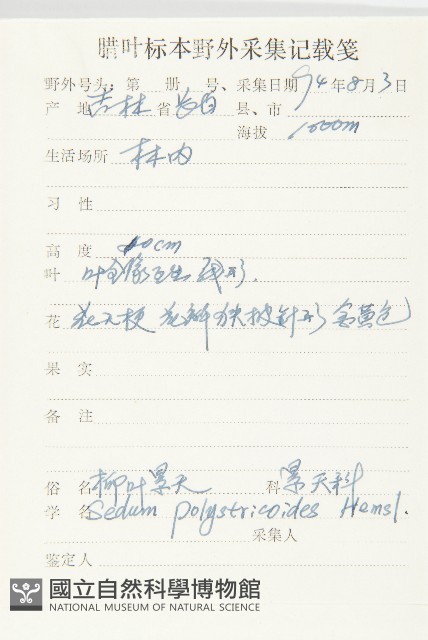 腊叶标本野外采集记载笺
野外号头：第 册 号、采集日期 94年8月3日
产 地 吉林 省 长白 县、市
海拔 1000m
生活场所 林内
习 性
高 度 cm
叶 叶全缘互生 线形.
花 花无梗 花瓣 披針形 黄色
果 实
备 注
俗 名 柳叶景天 科 景天科
学 名 Sedum polystricoides Hemsl.
采集人
鉴定人
國立自然科學博物館
NATIONAL MUSEUM OF NATURAL SCIENCE